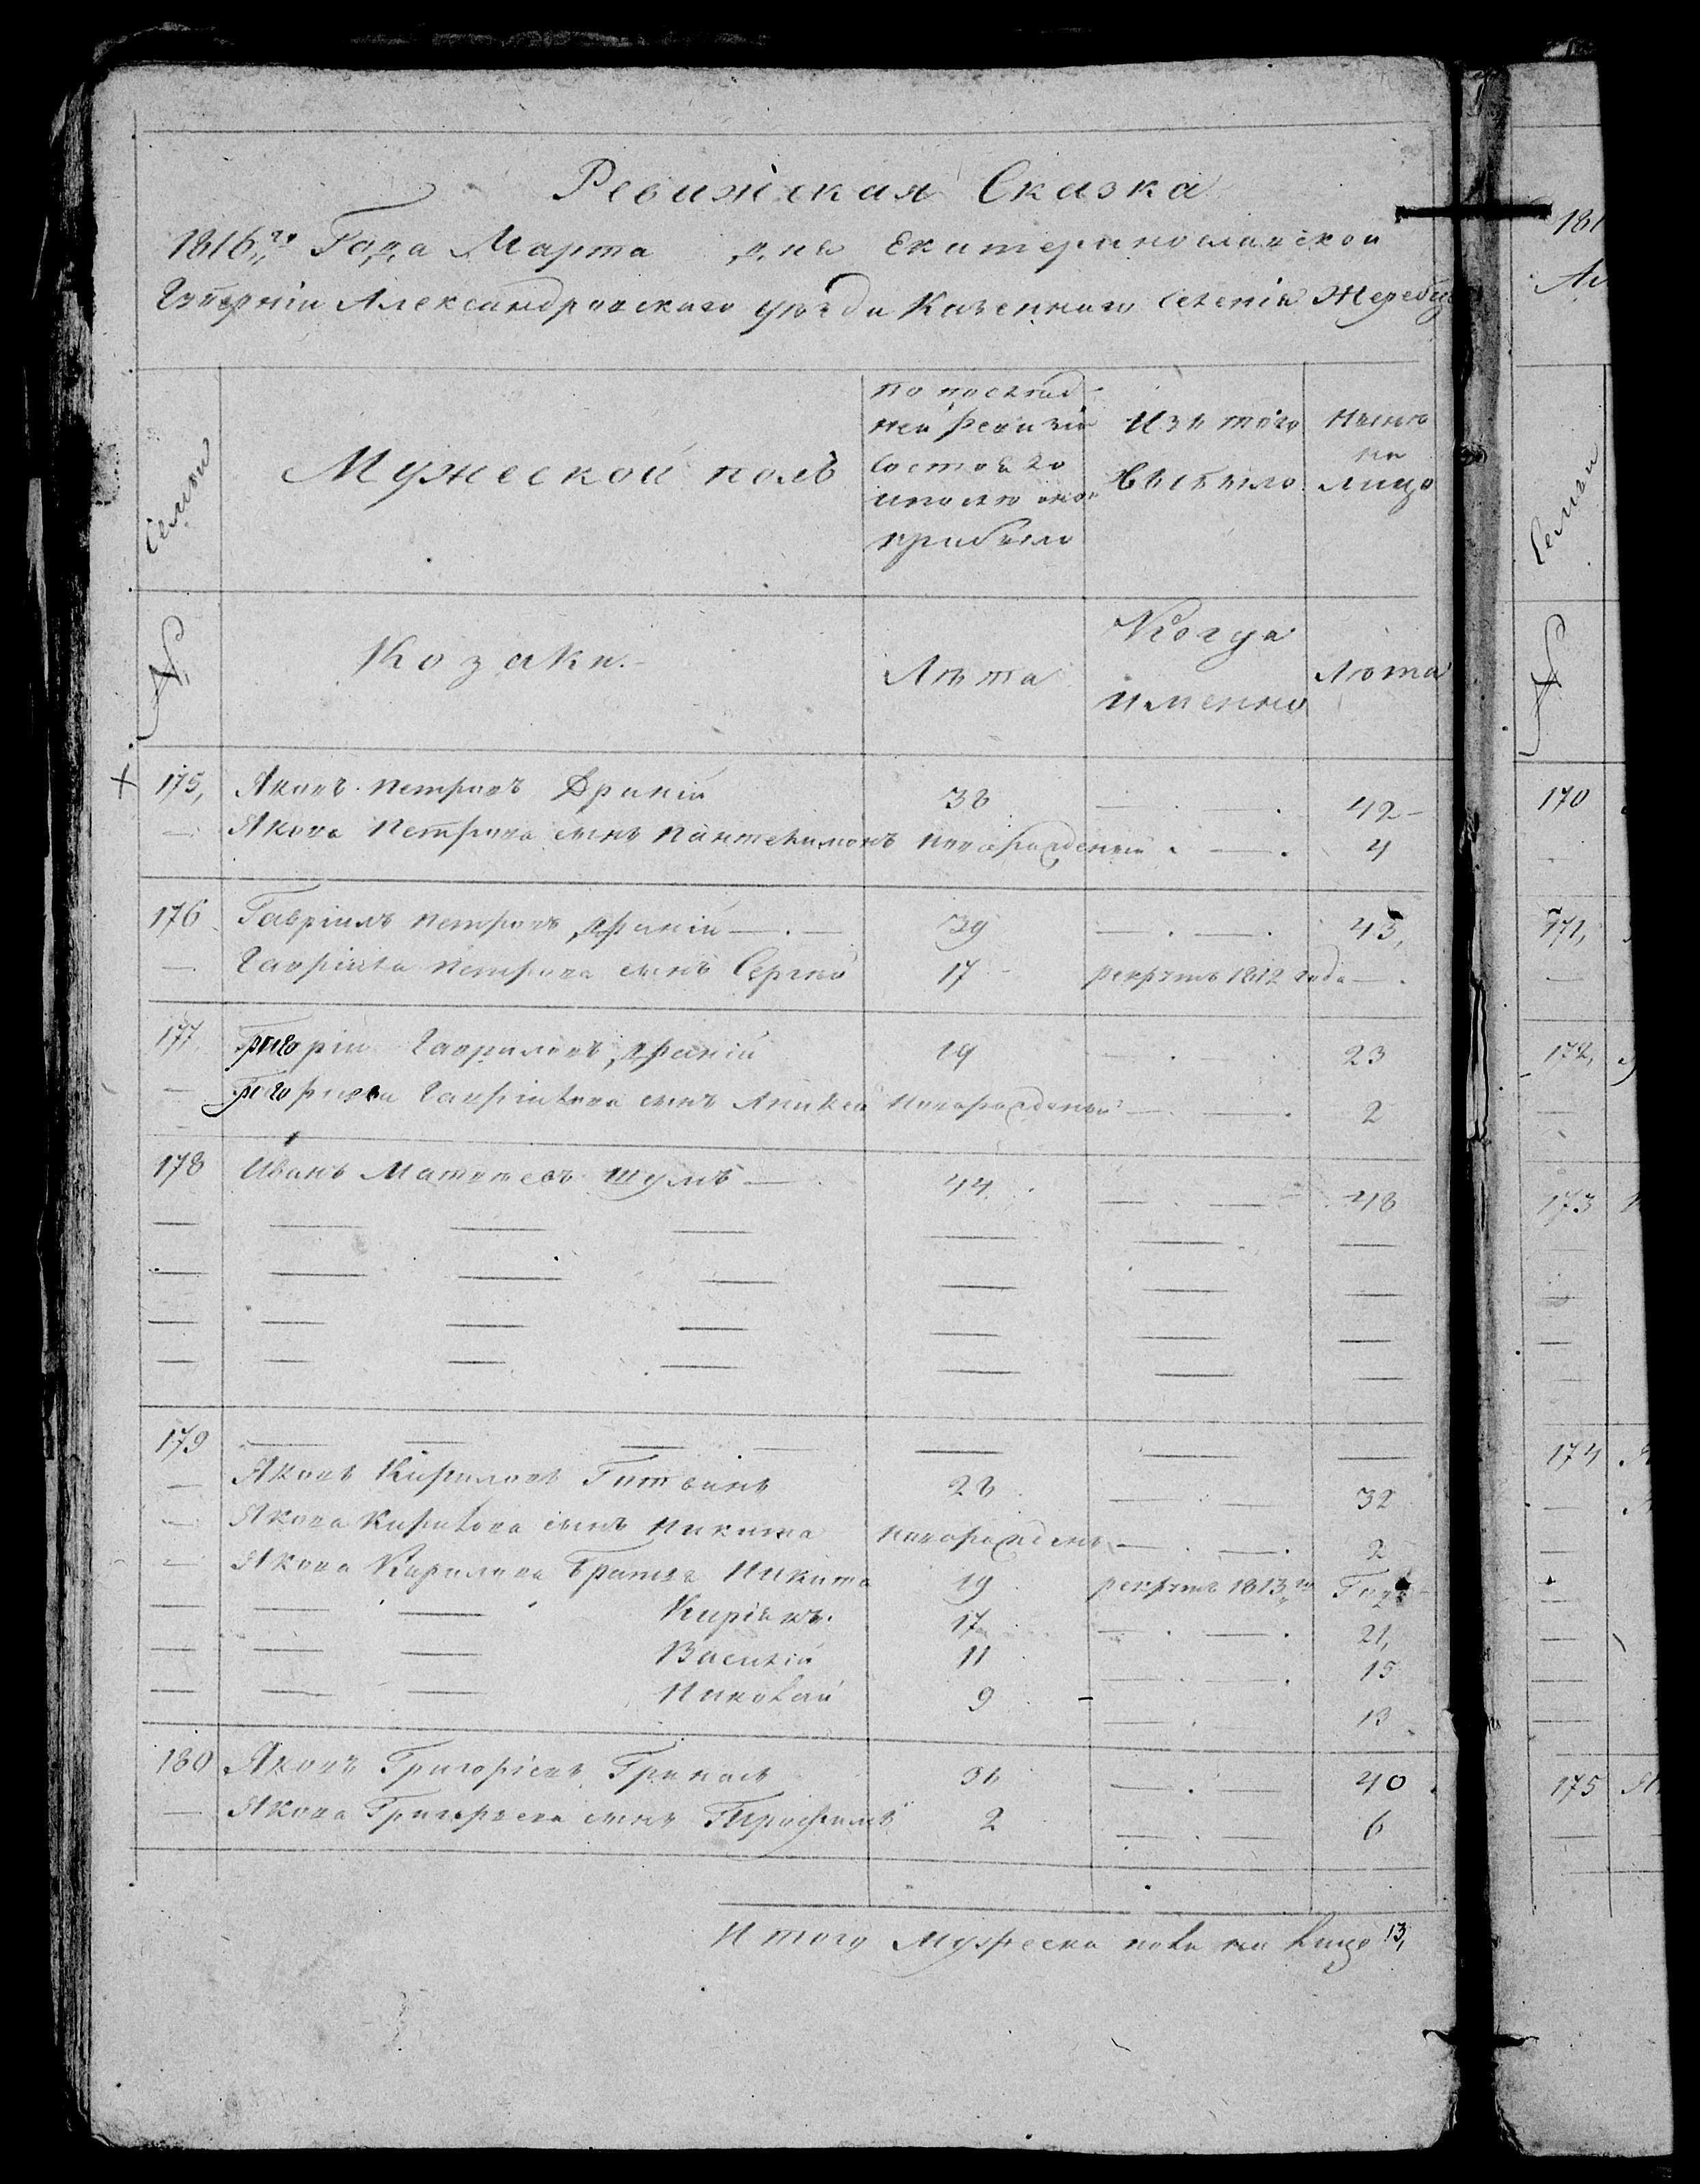 Ревижская Сказка
1816го Года Марта дня Екатеринославской
Губернии Александровского уезда Казенного селения Жеребц
Семьи
Мужеской полъ
по послед
ней ревизіи
состояло
и после оной
прибыло
Изъ того
выбыло
Ныне
на
лицо
№
Козаки.
Лета
Когда
именно
Лета
175, Яковъ Петровъ Дракій 38 42
Якова Петрова сынъ Пантелимонъ новорожденый 4
176 Гавріилъ Петровъ Дракій 39 43,
Гавріила Петрова сынъ Сергей 17 рекрутъ 1812 года
177 Григорій Гавриловъ Дракій 19 23
Григория Гавріилова сынъ Аникей новорожденый 2
178 Иванъ Матвеевъ Шумъ 44 48
179
Яковъ Кириловъ 28 32
Якова Кирилова сынъ Никита новорожденъ 2
Якова Кирилова братья Никита 19 рекрутъ 1813го Года
Киріянъ 17 21,
Василій 11 15
Николай 9 13
180 Яковъ Григорьевъ 36 40
Якова Григорьева сынъ 2 6
Итого мужеска пола на лицо 13,
181
Ал
Семьи
№
170
171,
172,
173
174
175